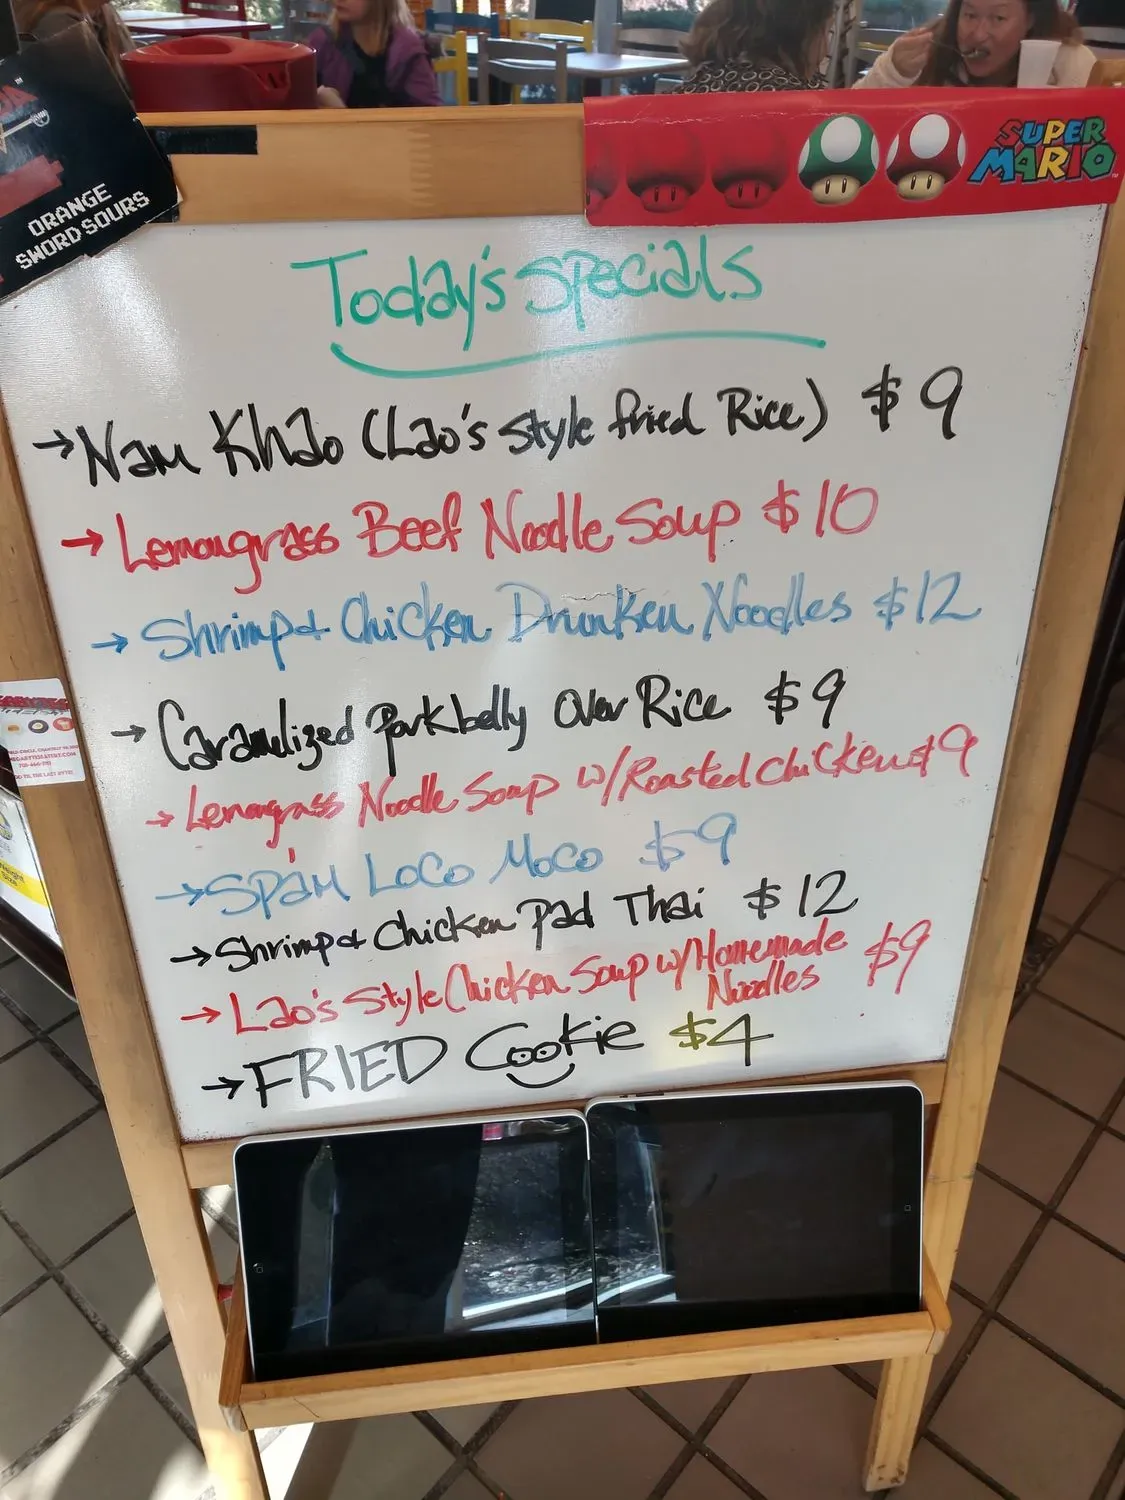 SUPER
MARIO
ORANGE
SWORD SOURS
Today's Specials
→ Nam Khao (Lao's Style Fried Rice) $9
→ Lemongrass Beef Noodle Soup $10
→ Shrimp & Chicken Drunken Noodles $12
→ Caramelized Porkbelly Over Rice $9
→ Lemongrass Noodle Soup w/Roasted Chicken $9
→ SPAM LOCO MOCO $9
→ Shrimp & Chicken Pad Thai $12
→ Lao's Style Chicken Soup w/Homemade Noodles $9
→ FRIED Cookie $4